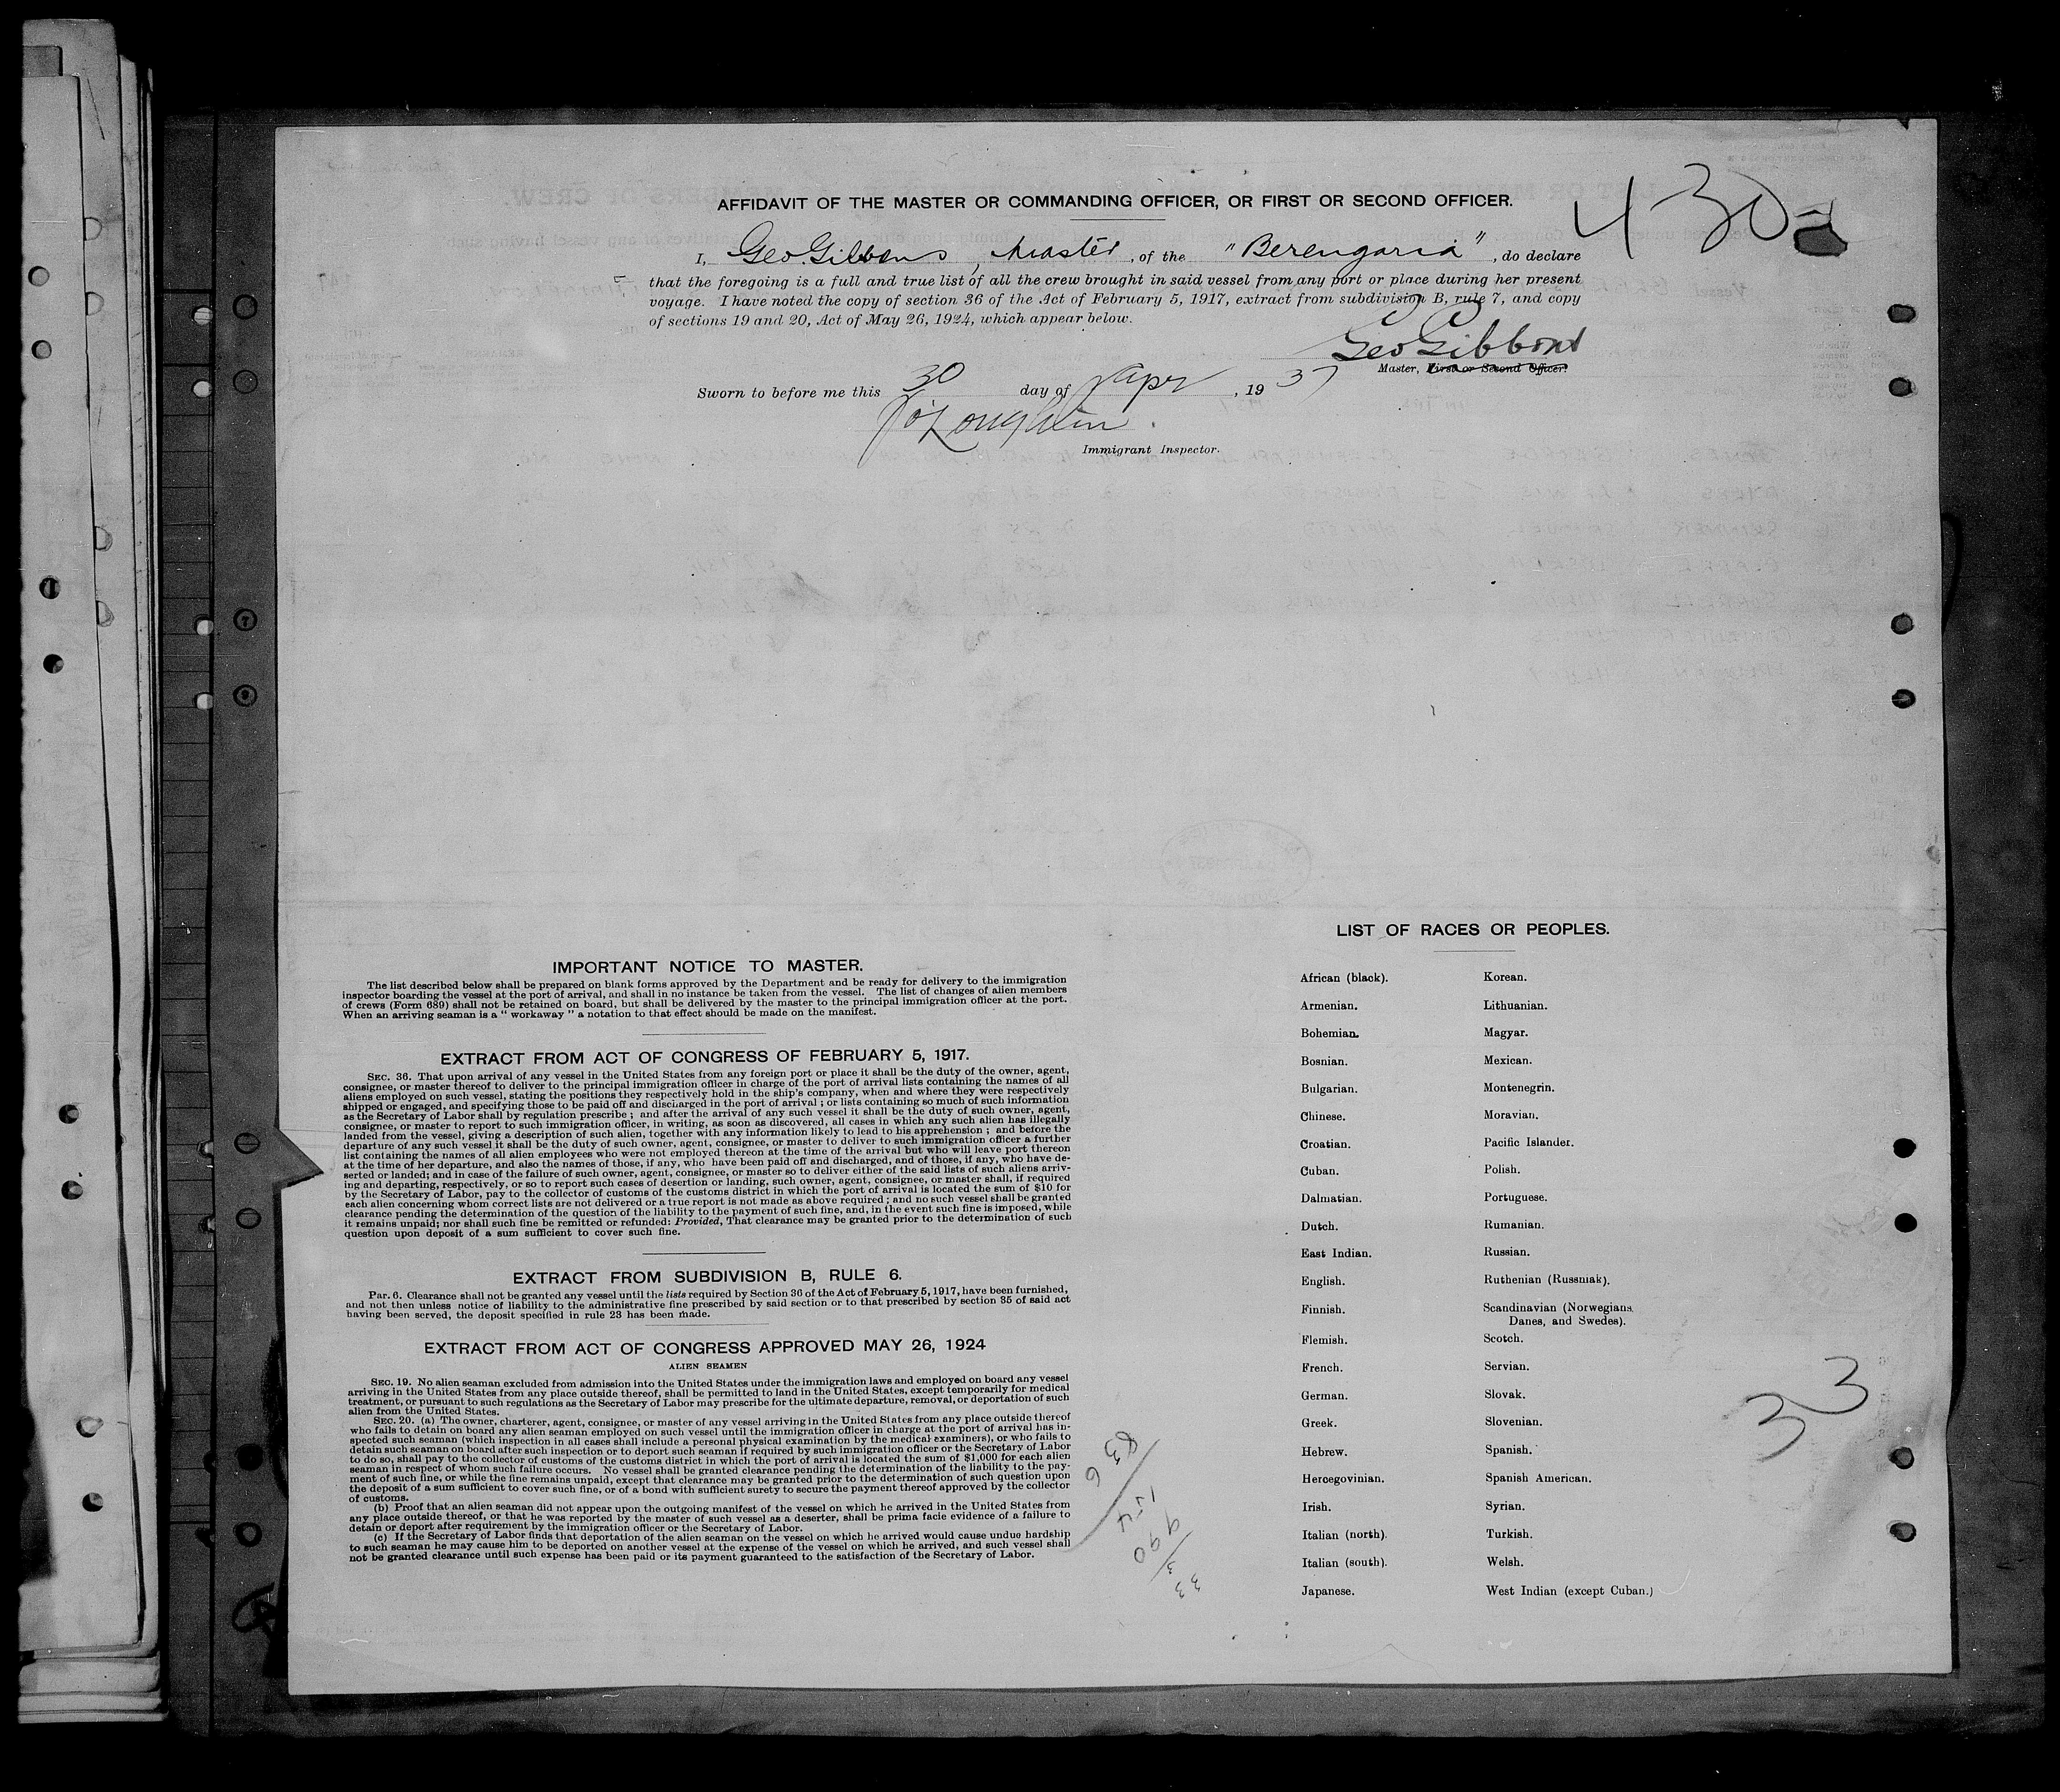 430
AFFIDAVIT OF THE MASTER OR COMMANDING OFFICER, OR FIRST OR SECOND OFFICER.
I, Geo Gibbons, Master, of the "Berengaria", do declare
that the foregoing is a full and true list of all the crew brought in said vessel from any port or place during her present
voyage. I have noted the copy of section 36 of the Act of February 5, 1917, extract from subdivision B, rule 7, and copy
of sections 19 and 20, Act of May 26, 1924, which appear below.
Geo Gibbons
Master, First or Second Officer.
Sworn to before me this 30 day of Apr, 1937
O'Loughlin
Immigrant Inspector.
IMPORTANT NOTICE TO MASTER.
The list described below shall be prepared on blank forms approved by the Department and be ready for delivery to the immigration
inspector boarding the vessel at the port of arrival, and shall in no instance be taken from the vessel. The list of changes of alien members
of crews (Form 689) shall not be retained on board, but shall be delivered by the master to the principal immigration officer at the port.
When an arriving seaman is a " workaway " a notation to that effect should be made on the manifest.
EXTRACT FROM ACT OF CONGRESS OF FEBRUARY 5, 1917.
SEC. 36. That upon arrival of any vessel in the United States from any foreign port or place it shall be the duty of the owner, agent,
consignee, or master thereof to deliver to the principal immigration officer in charge of the port of arrival lists containing the names of all
aliens employed on such vessel, stating the positions they respectively hold in the ship's company, when and where they were respectively
shipped or engaged, and specifying those to be paid off and discharged in the port of arrival ; or lists containing so much of such information
as the Secretary of Labor shall by regulation prescribe ; and after the arrival of any such vessel it shall be the duty of such owner, agent,
consignee, or master to report to such immigration officer, in writing, as soon as discovered, all cases in which any such alien has illegally
landed from the vessel, giving a description of such alien, together with any information likely to lead to his apprehension ; and before the
departure of any such vessel it shall be the duty of such owner, agent, consignee, or master to deliver to such immigration officer a further
list containing the names of all alien employees who were not employed thereon at the time of the arrival but who will leave port thereon
at the time of her departure, and also the names of those, if any, who have been paid off and discharged, and of those, if any, who have de-
serted or landed; and in case of the failure of such owner, agent, consignee, or master so to deliver either of the said lists of such aliens arriv-
ing and departing, respectively, or so to report such cases of desertion or landing, such owner, agent, consignee, or master shall, if required
by the Secretary of Labor, pay to the collector of customs of the customs district in which the port of arrival is located the sum of $10 for
each alien concerning whom correct lists are not delivered or a true report is not made as above required ; and no such vessel shall be granted
clearance pending the determination of the question of the liability to the payment of such fine, and, in the event such fine is imposed, while
it remains unpaid; nor shall such fine be remitted or refunded: Provided, That clearance may be granted prior to the determination of such
question upon deposit of a sum sufficient to cover such fine.
EXTRACT FROM SUBDIVISION B, RULE 6.
Par. 6. Clearance shall not be granted any vessel until the lists required by Section 36 of the Act of February 5, 1917, have been furnished,
and not then unless notice of liability to the administrative fine prescribed by said section or to that prescribed by section 35 of said act
having been served, the deposit specified in rule 23 has been made.
EXTRACT FROM ACT OF CONGRESS APPROVED MAY 26, 1924
ALIEN SEAMEN
SEC. 19. No alien seaman excluded from admission into the United States under the immigration laws and employed on board any vessel
arriving in the United States from any place outside thereof, shall be permitted to land in the United States, except temporarily for medical
treatment, or pursuant to such regulations as the Secretary of Labor may prescribe for the ultimate departure, removal, or deportation of such
alien from the United States.
SEC. 20. (a) The owner, charterer, agent, consignee, or master of any vessel arriving in the United States from any place outside thereof
who fails to detain on board any alien seaman employed on such vessel until the immigration officer in charge at the port of arrival has in-
spected such seaman (which inspection in all cases shall include a personal physical examination by the medical examiners), or who fails to
detain such seaman on board after such inspection or to deport such seaman if required by such immigration officer or the Secretary of Labor
to do so, shall pay to the collector of customs of the customs district in which the port of arrival is located the sum of $1,000 for each alien
seaman in respect of whom such failure occurs. No vessel shall be granted clearance pending the determination of the liability to the pay-
ment of such fine, or while the fine remains unpaid, except that clearance may be granted prior to the determination of such question upon
the deposit of a sum sufficient to cover such fine, or of a bond with sufficient surety to secure the payment thereof approved by the collector
of customs.
(b) Proof that an alien seaman did not appear upon the outgoing manifest of the vessel on which he arrived in the United States from
any place outside thereof, or that he was reported by the master of such vessel as a deserter, shall be prima facie evidence of a failure to
detain or deport after requirement by the immigration officer or the Secretary of Labor.
(c) If the Secretary of Labor finds that deportation of the alien seaman on the vessel on which he arrived would cause undue hardship
to such seaman he may cause him to be deported on another vessel at the expense of the vessel on which he arrived, and such vessel shall
not be granted clearance until such expense has been paid or its payment guaranteed to the satisfaction of the Secretary of Labor.
836
154
990
3
33
LIST OF RACES OR PEOPLES.
African (black). Korean.
Armenian. Lithuanian.
Bohemian. Magyar.
Bosnian. Mexican.
Bulgarian. Montenegrin.
Chinese. Moravian.
Croatian. Pacific Islander.
Cuban. Polish.
Dalmatian. Portuguese.
Dutch. Rumanian.
East Indian. Russian.
English. Ruthenian (Russniak).
Finnish. Scandinavian (Norwegians,
Danes, and Swedes).
Flemish. Scotch.
French. Servian.
German. Slovak.
Greek. Slovenian.
Hebrew. Spanish.
Hercegovinian. Spanish American.
Irish. Syrian.
Italian (north). Turkish.
Italian (south). Welsh.
Japanese. West Indian (except Cuban.)
33